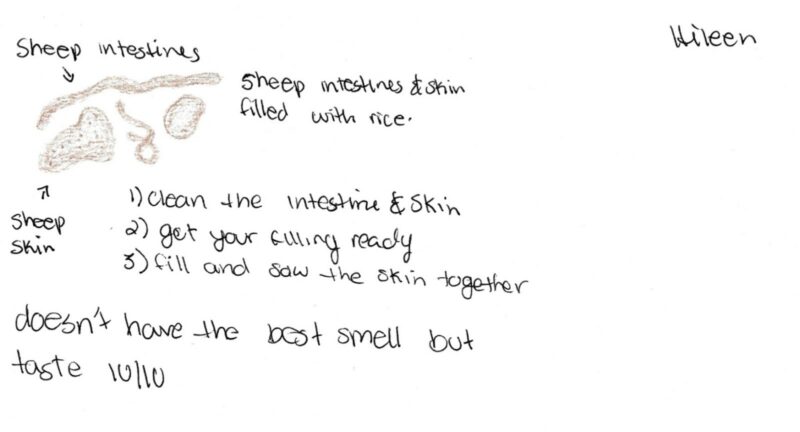 Hileen
Sheep intestines
Sheep intestines & skin
filled with rice.
Sheep
skin
1) clean the intestine & skin
2) get your filling ready
3) fill and saw the skin together
doesn't have the best smell but
taste 10/10